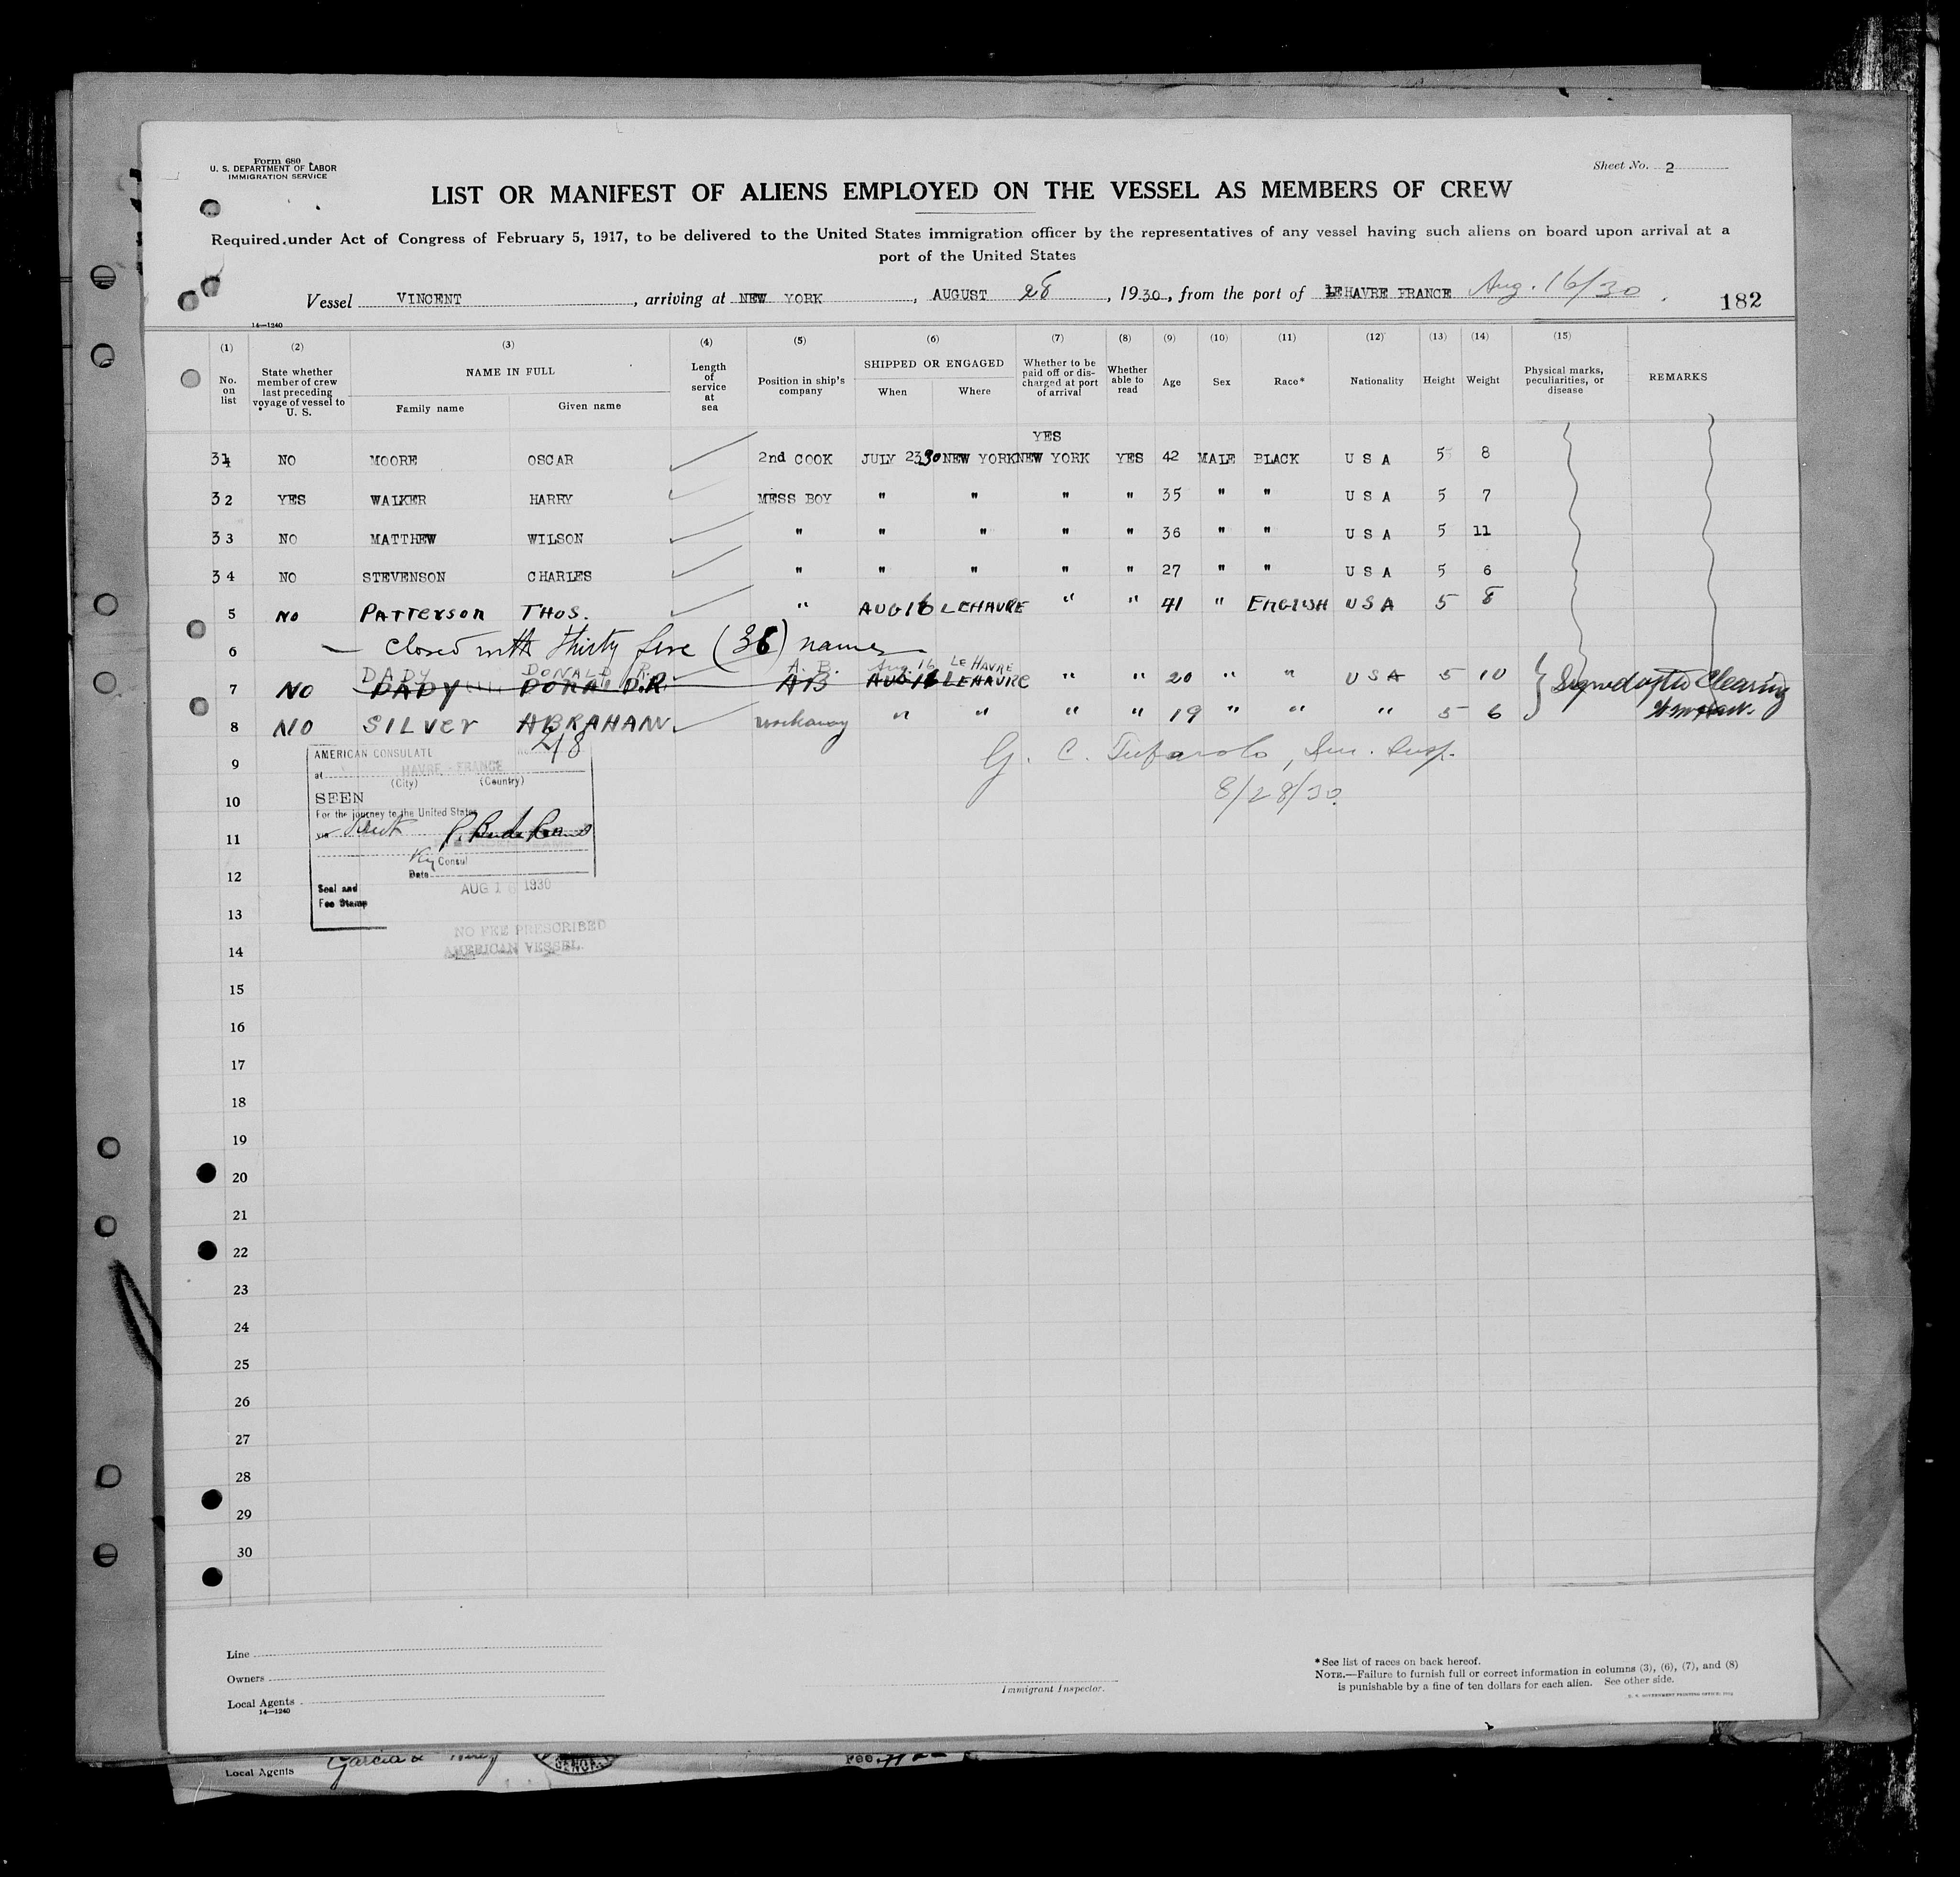 Form 680
U. S. DEPARTMENT OF LABOR
IMMIGRATION SERVICE
Sheet No. 2
LIST OR MANIFEST OF ALIENS EMPLOYED ON THE VESSEL AS MEMBERS OF CREW
Required under Act of Congress of February 5, 1917, to be delivered to the United States immigration officer by the representatives of any vessel having such aliens on board upon arrival at a
port of the United States
Vessel VINCENT, arriving at NEW YORK, AUGUST 28, 1930, from the port of LEHAVRE FRANCE Aug. 16/30.
182
14—1240
(1) (2) (3) (4) (5) (6) (7) (8) (9) (10) (11) (12) (13) (14) (15)
No. on list
State whether member of crew last preceding voyage of vessel to U. S.
NAME IN FULL
Family name Given name
Length of service at sea
Position in ship's company
SHIPPED OR ENGAGED
When Where
Whether to be paid off or discharged at port of arrival
Whether able to read
Age Sex Race* Nationality Height Weight
Physical marks, peculiarities, or disease
REMARKS
YES
31 NO MOORE OSCAR 2nd COOK JULY 23 30 NEW YORK NEW YORK YES 42 MALE BLACK U S A 5 8
32 YES WALKER HARRY MESS BOY " " " " 35 " " U S A 5 7
33 NO MATTHEW WILSON " " " " " 36 " " U S A 5 11
34 NO STEVENSON CHARLES " " " " " 27 " " U S A 5 6
5 NO PATTERSON THOS. " AUG 16 LEHAVRE " " 41 " ENGLISH U S A 5 8
6 Closed with thirty five (36) names
DADY DONALD R. A. B. Aug. 16 LE HAVRE
7 NO DADY DONALD.R. AB AUG 16 LEHAVRE " " 20 " " U S A 5 10 Signed after Clearing
8 NO SILVER ABRAHAM workaway " " " " 19 " " " 5 6
9 G. C. Tufarolo, Im. Insp.
8/28/30.
AMERICAN CONSULATE No. 218
at HAVRE - FRANCE
(City) (Country)
SEEN
For the journey to the United States
via
Consul
Date AUG 1 1930
Seal and
Fee Stamp
NO FEE PRESCRIBED
AMERICAN VESSEL.
10
11
12
13
14
15
16
17
18
19
20
21
22
23
24
25
26
27
28
29
30
Line
Owners
Local Agents
14—1240
Immigrant Inspector.
*See list of races on back hereof.
NOTE.—Failure to furnish full or correct information in columns (3), (6), (7), and (8)
is punishable by a fine of ten dollars for each alien. See other side.
Local Agents Garcia &
Fee